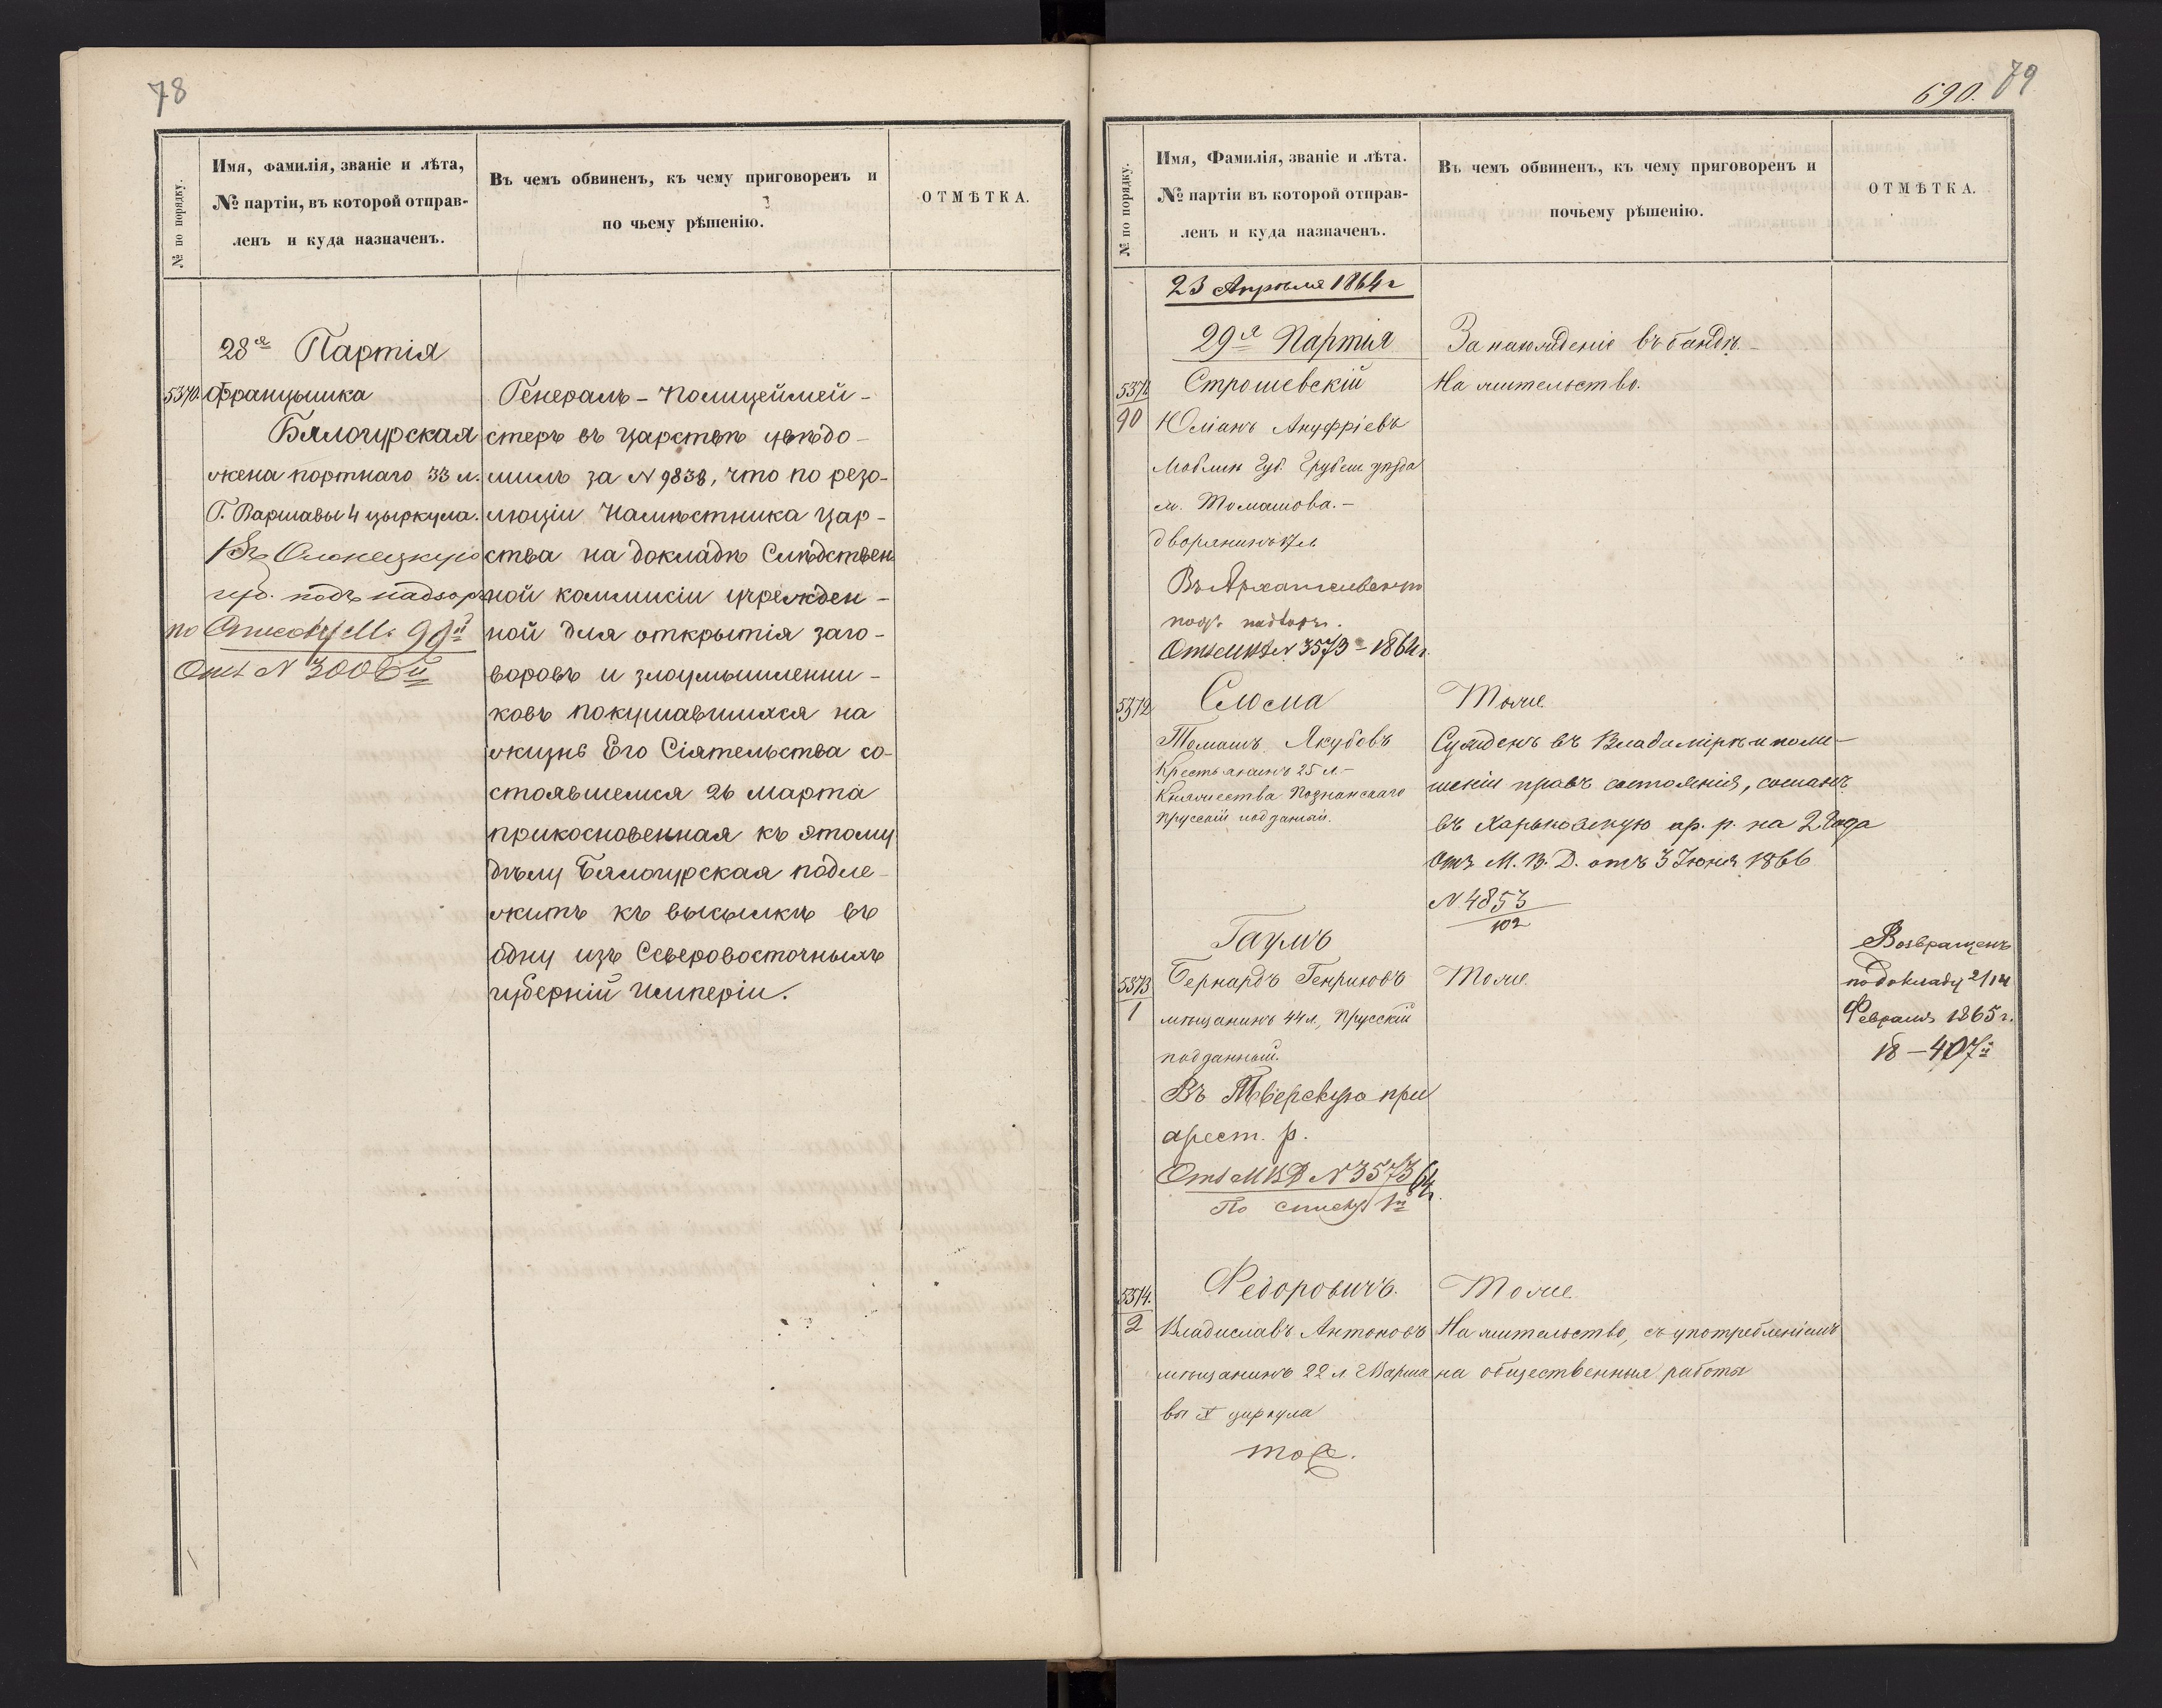 78
№ по порядку.
Имя, фамилія, званіе и лѣта,
№ партіи, въ которой отправ-
ленъ и куда назначенъ.
Въ чемъ обвиненъ, къ чему приговоренъ и
по чьему рѣшенію.
ОТМѢТКА.
28я Партія
5370. Францышка
Бялогурская
жена портнаго 33 л.
Г. Варшавы 4 цыркула.
Въ Олонецкую
губ. подъ надзоръ
по Списку М. 99й
Отн N 3006й
Генералъ-Полицеймей-
стеръ въ Царствѣ увѣдо-
милъ за N 9838, что по резо-
люціи Намѣстника Цар-
ства на докладѣ Слѣдствен
ной коммисіи учрежден-
ной для открытія заго-
воровъ и злоумышленни-
ковъ покушавшихся на
жизнь Его Сіятельства со-
стоявшемся 26 марта
прикосновенная къ этому
дѣлу Бялогурская подле-
житъ къ высылкѣ въ
одну изъ Северовосточныхъ
губерній Имперіи.
690. 79
№ по порядку.
Имя, Фамилія, званіе и лѣта.
№ партіи въ которой отправ-
ленъ и куда назначенъ.
Въ чемъ обвиненъ, къ чему приговоренъ и
почьему рѣшенію.
ОТМѢТКА.
23 Апрѣля 1864 г
29я Партія
За нахожденіе въ бандѣ.-
5371 Строшевскій
На жительство.
90 Юліанъ Ануфріевъ
Люблин Губ. Грубеш. уѣзда
м. Томашова.-
дворянинъ 17 л.
Въ Архангельскую
подъ надзоръ.
Отн МВД N 3573 - 1864 г.
5372 Слюсма
Тоже.
Томашъ Якубовъ
Крестьянинъ 25 л.-
Княжества Познанскаго
Прусскій подданый.
Сужденъ въ Владимірѣ и по ли-
шеніи правъ состоянія, сосланъ
въ Харьковскую ар. р. на 2 Года
Отз М. В. Д. отъ 3 Іюня 1866
N 4853
102
Гаумъ
5373 Бернардъ Генриховъ
Тоже.
1 мѣщанинъ 44 л, Прусскій
подданный.
Въ Тверскую при
арест. р.
Отн МВД N 3573/64 г.
По списку 1й
Возвращенъ
по докладу 2/14
Февраля 1865 г.
18 - 407й
5374. Федоровичъ.
Тоже.
2 Владиславъ Антоновъ
На жительство, съ употребленіемъ
мѣщанинъ 22 л. г Варша
на общественныя работы
вы X циркула
тоже.